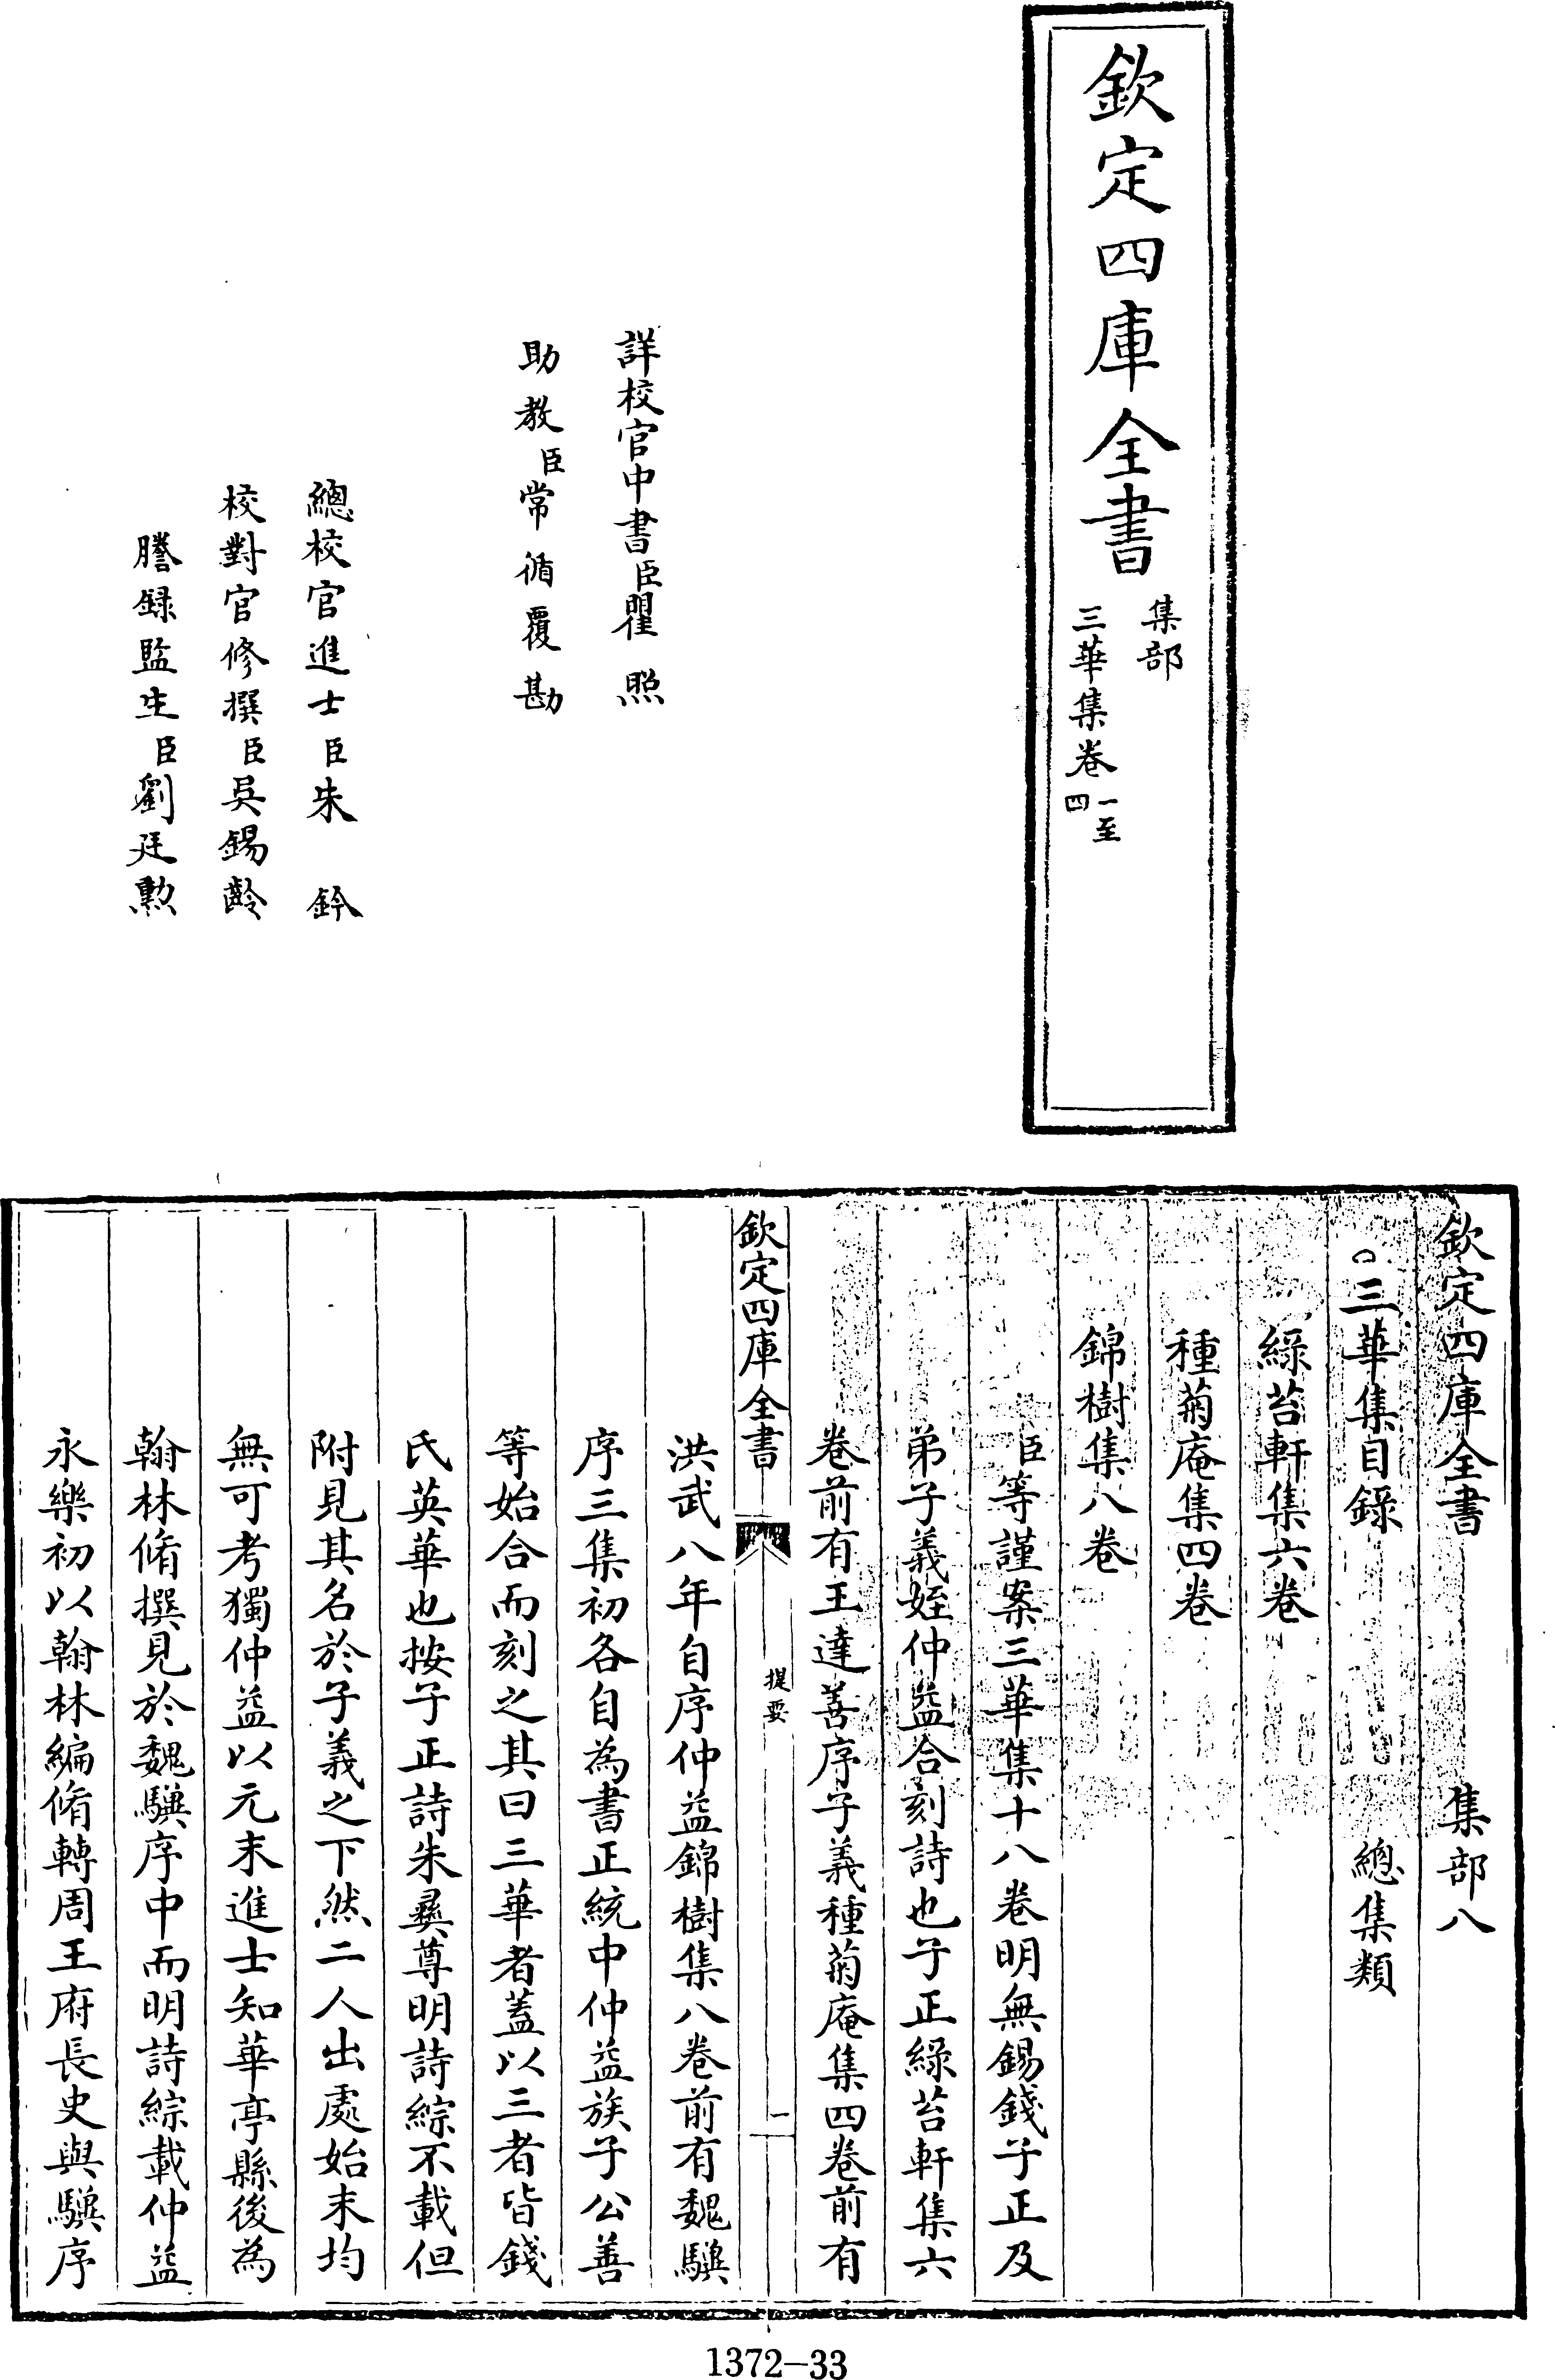 欽定四庫全書
集部
三華集卷一至四
詳校官中書臣瞿照
助教臣常循覆勘
總校官進士臣朱鈐
校對官修撰臣吳錫齡
謄錄監生臣劉廷勲
欽定四庫全書 集部八
三華集目錄 總集類
綠苔軒集六卷
種菊庵集四卷
錦樹集八卷
臣等謹案三華集十八卷明無錫錢子正及
弟子義姪仲益合刻詩也子正綠苔軒集六
卷前有王達善序子義種菊庵集四卷前有
欽定四庫全書 提要 一
洪武八年自序仲益錦樹集八卷前有魏驥
序三集初各自為書正統中仲益族子公善
等始合而刻之其曰三華者蓋以三者皆錢
氏英華也按子正詩朱彞尊明詩綜不載但
附見其名於子義之下然二人出處始末均
無可考獨仲益以元末進士知華亭縣後為
翰林脩撰見於魏驥序中而明詩綜載仲益
永樂初以翰林編脩轉周王府長史與驥序
1372-33